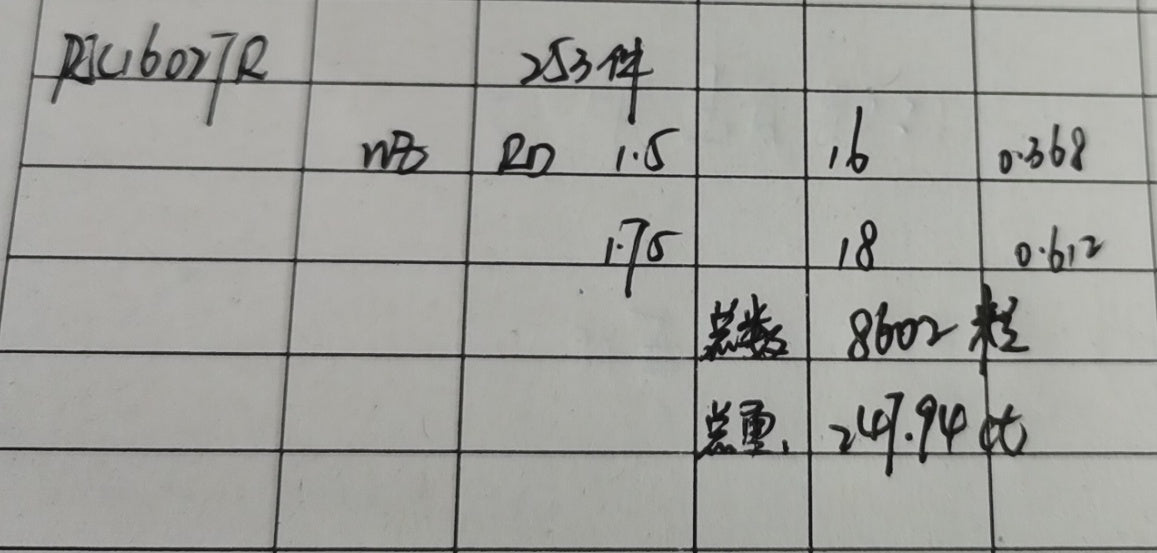 RJC16027R 253件
WB RD 1.5 16 0.368
1.75 18 0.612
总数 8602粒
总重 247.94 ct